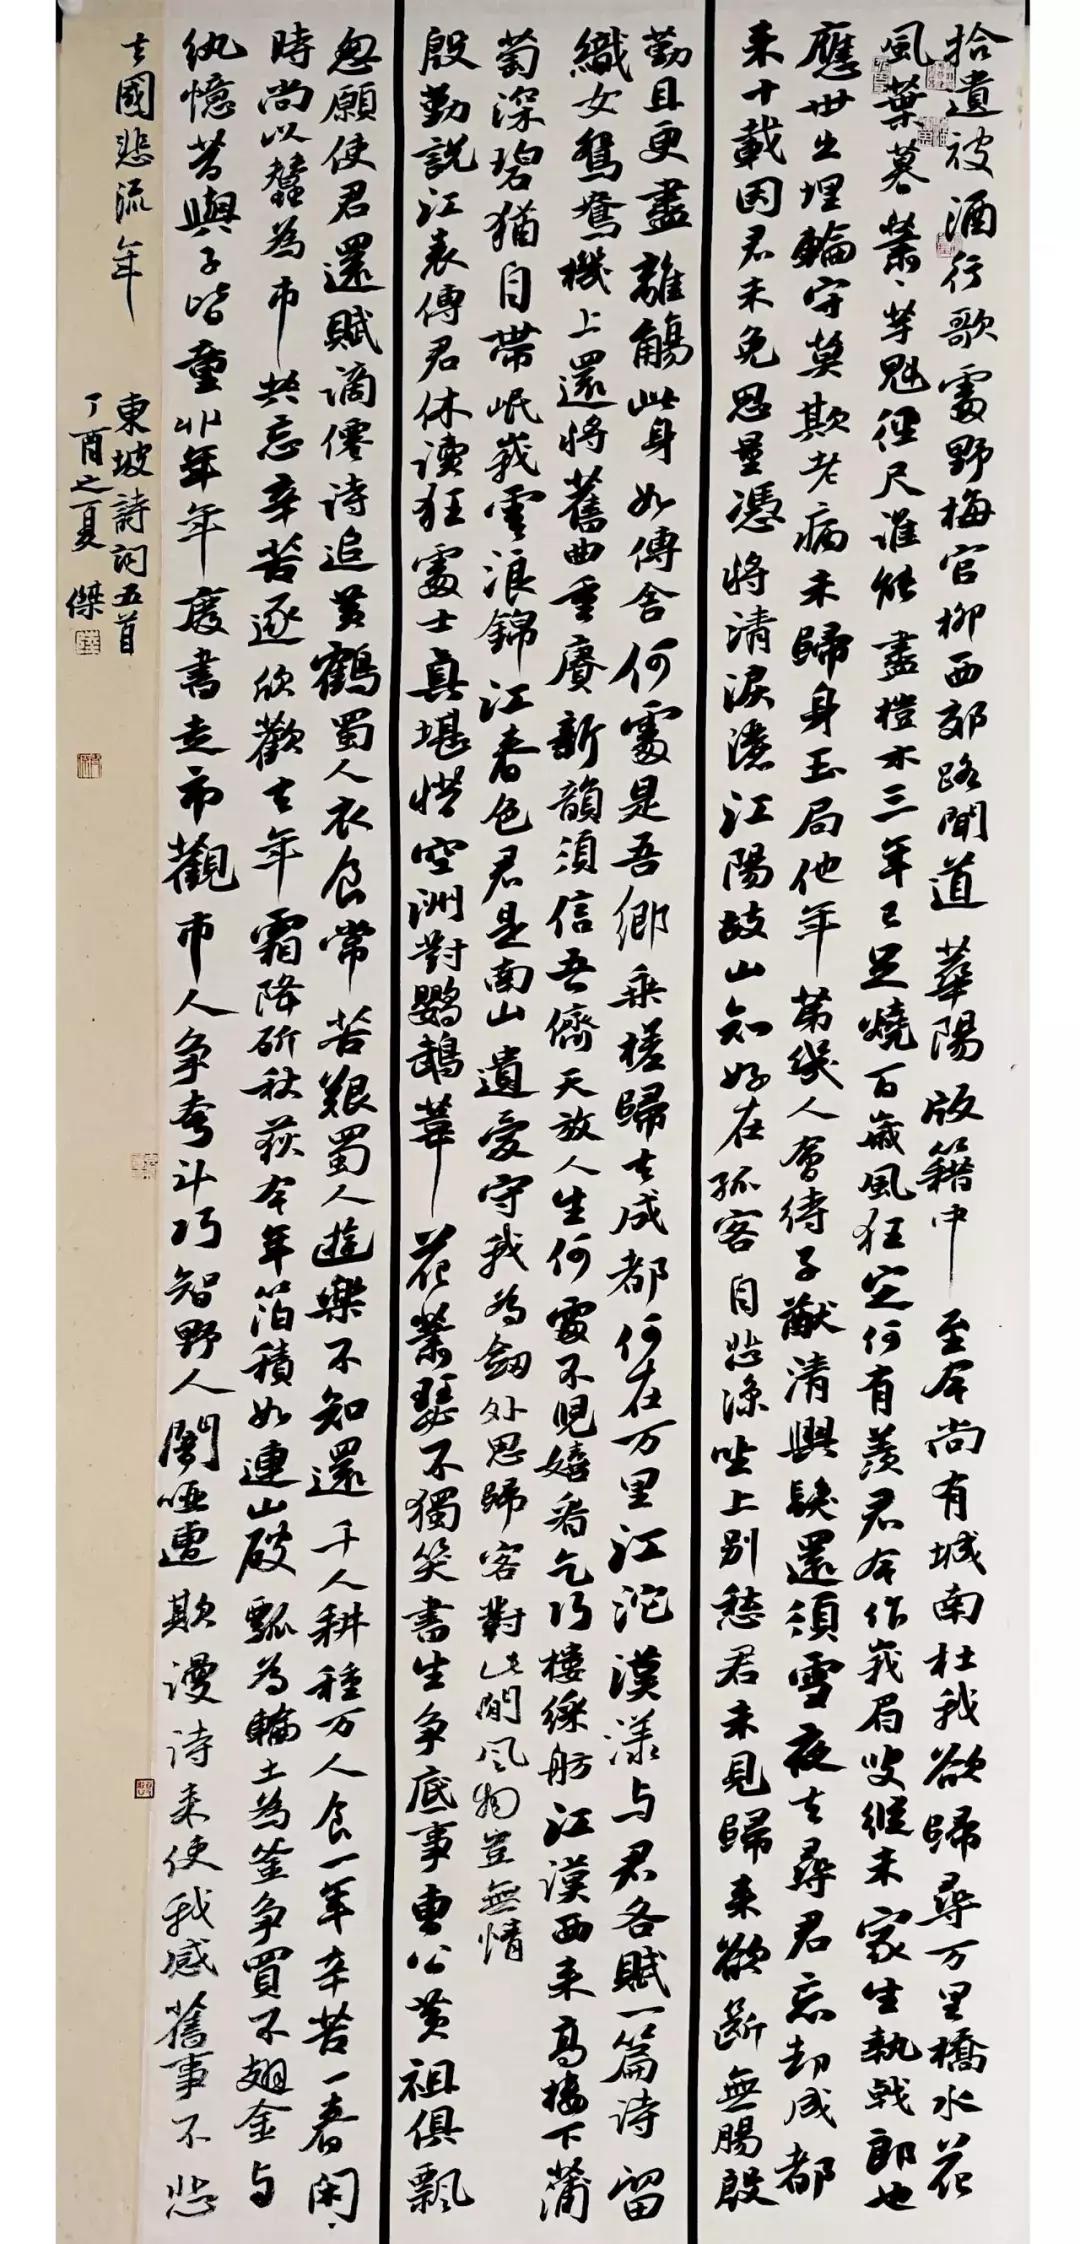 拾遺被酒行歌處野梅官柳西郊路聞道華陽版籍中至今尚有城南杜我欲歸尋万里橋水花
風葉暮蕭々芋魁徑尺誰能盡榿木三年已足燒百歲風狂定何有羨君今作峨眉叟縱未家生執戟郎也
應世出埋輪守莫欺老病未歸身玉局他年第幾人會待子猷清興發還須雪夜去尋君忘却成都
来十載因君未免思量憑將清淚灑江陽故山知好在孤客自悲涼坐上别愁君未見歸来欲斷無腸殷
勤且更盡離觴此身如傳舍何處是吾鄉乘槎歸去成都何在万里江沱漢漾与君各賦一篇詩留
織女鴛鴦機上還將舊曲重賡新韻須信吾儕天放人生何處不兒嬉看乞巧樓綵舫江漢西来高樓下蒲
萄深碧猶自帶岷峨雪浪錦江春色君是南山遺愛守我為劒外思歸客對此間風物豈無情
殷勤說江表傳君休讀狂處士真堪惜空洲對鸚鵡葦花蕭瑟不獨笑書生爭底事曹公黃祖俱飄
忽願使君還賦謫僊詩追黃鶴蜀人衣食常苦艱蜀人遊樂不知還千人耕種万人食一年辛苦一春閑
時尚以蠶為市共忘辛苦逐欣歡去年霜降斫秋荻今年箔積如連山破瓢為輪土為釜爭買不翅金与
紈憶昔與子皆童丱年年廢書走市觀市人爭夸斗巧智野人闇啞遭欺謾詩来使我感舊事不悲
去國悲流年
東坡詩詞五首
丁酉之夏 傑